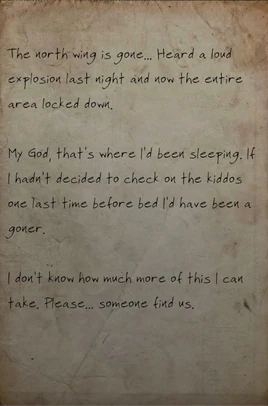 The north wing is gone... Heard a loud
explosion last night and now the entire
area locked down.
My God, that's where I'd been sleeping. If
I hadn't decided to check on the kiddos
one last time before bed I'd have been a
goner.
I don't know how much more of this I can
take. Please... someone find us.